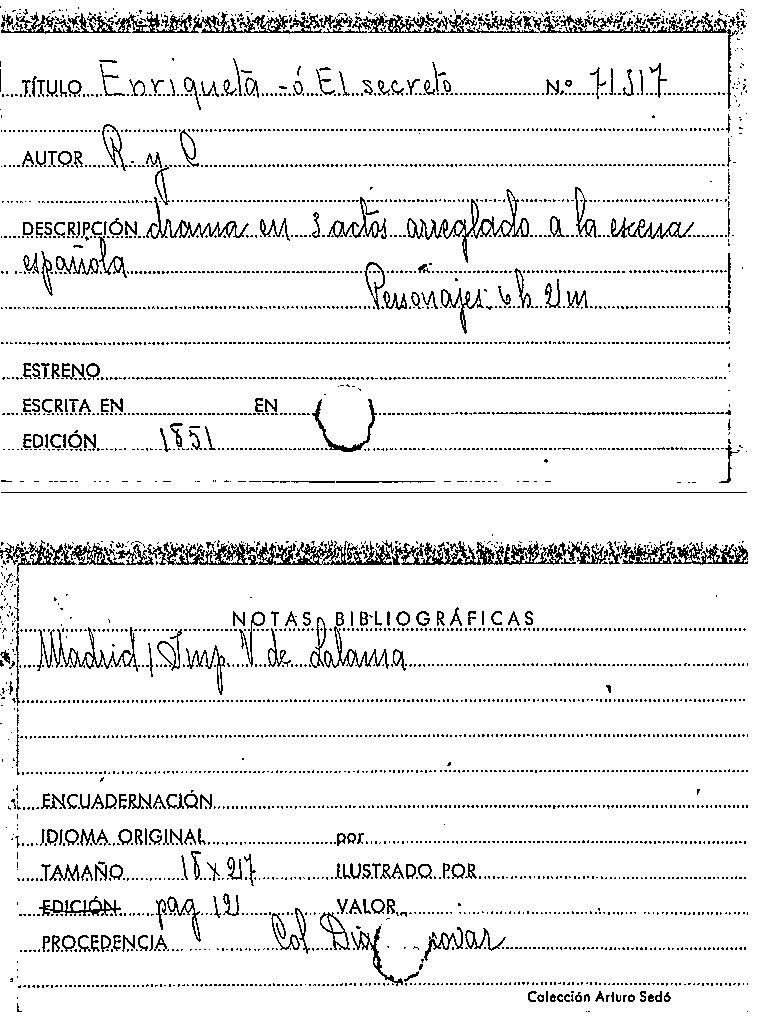 TÍTULO Enriqueta - ó El secreto N.º 71317
AUTOR R. y C
DESCRIPCIÓN drama en 3 actos arreglado a la escena
española
Personajes: 6 h 2 m
ESTRENO
ESCRITA EN EN
EDICIÓN 1851
NOTAS BIBLIOGRÁFICAS
Madrid / Imp. V de Lalama
ENCUADERNACIÓN
IDIOMA ORIGINAL por
TAMAÑO 18 x 27
ILUSTRADO POR
EDICIÓN pag 12
VALOR
PROCEDENCIA Col
Colección Arturo Sedó